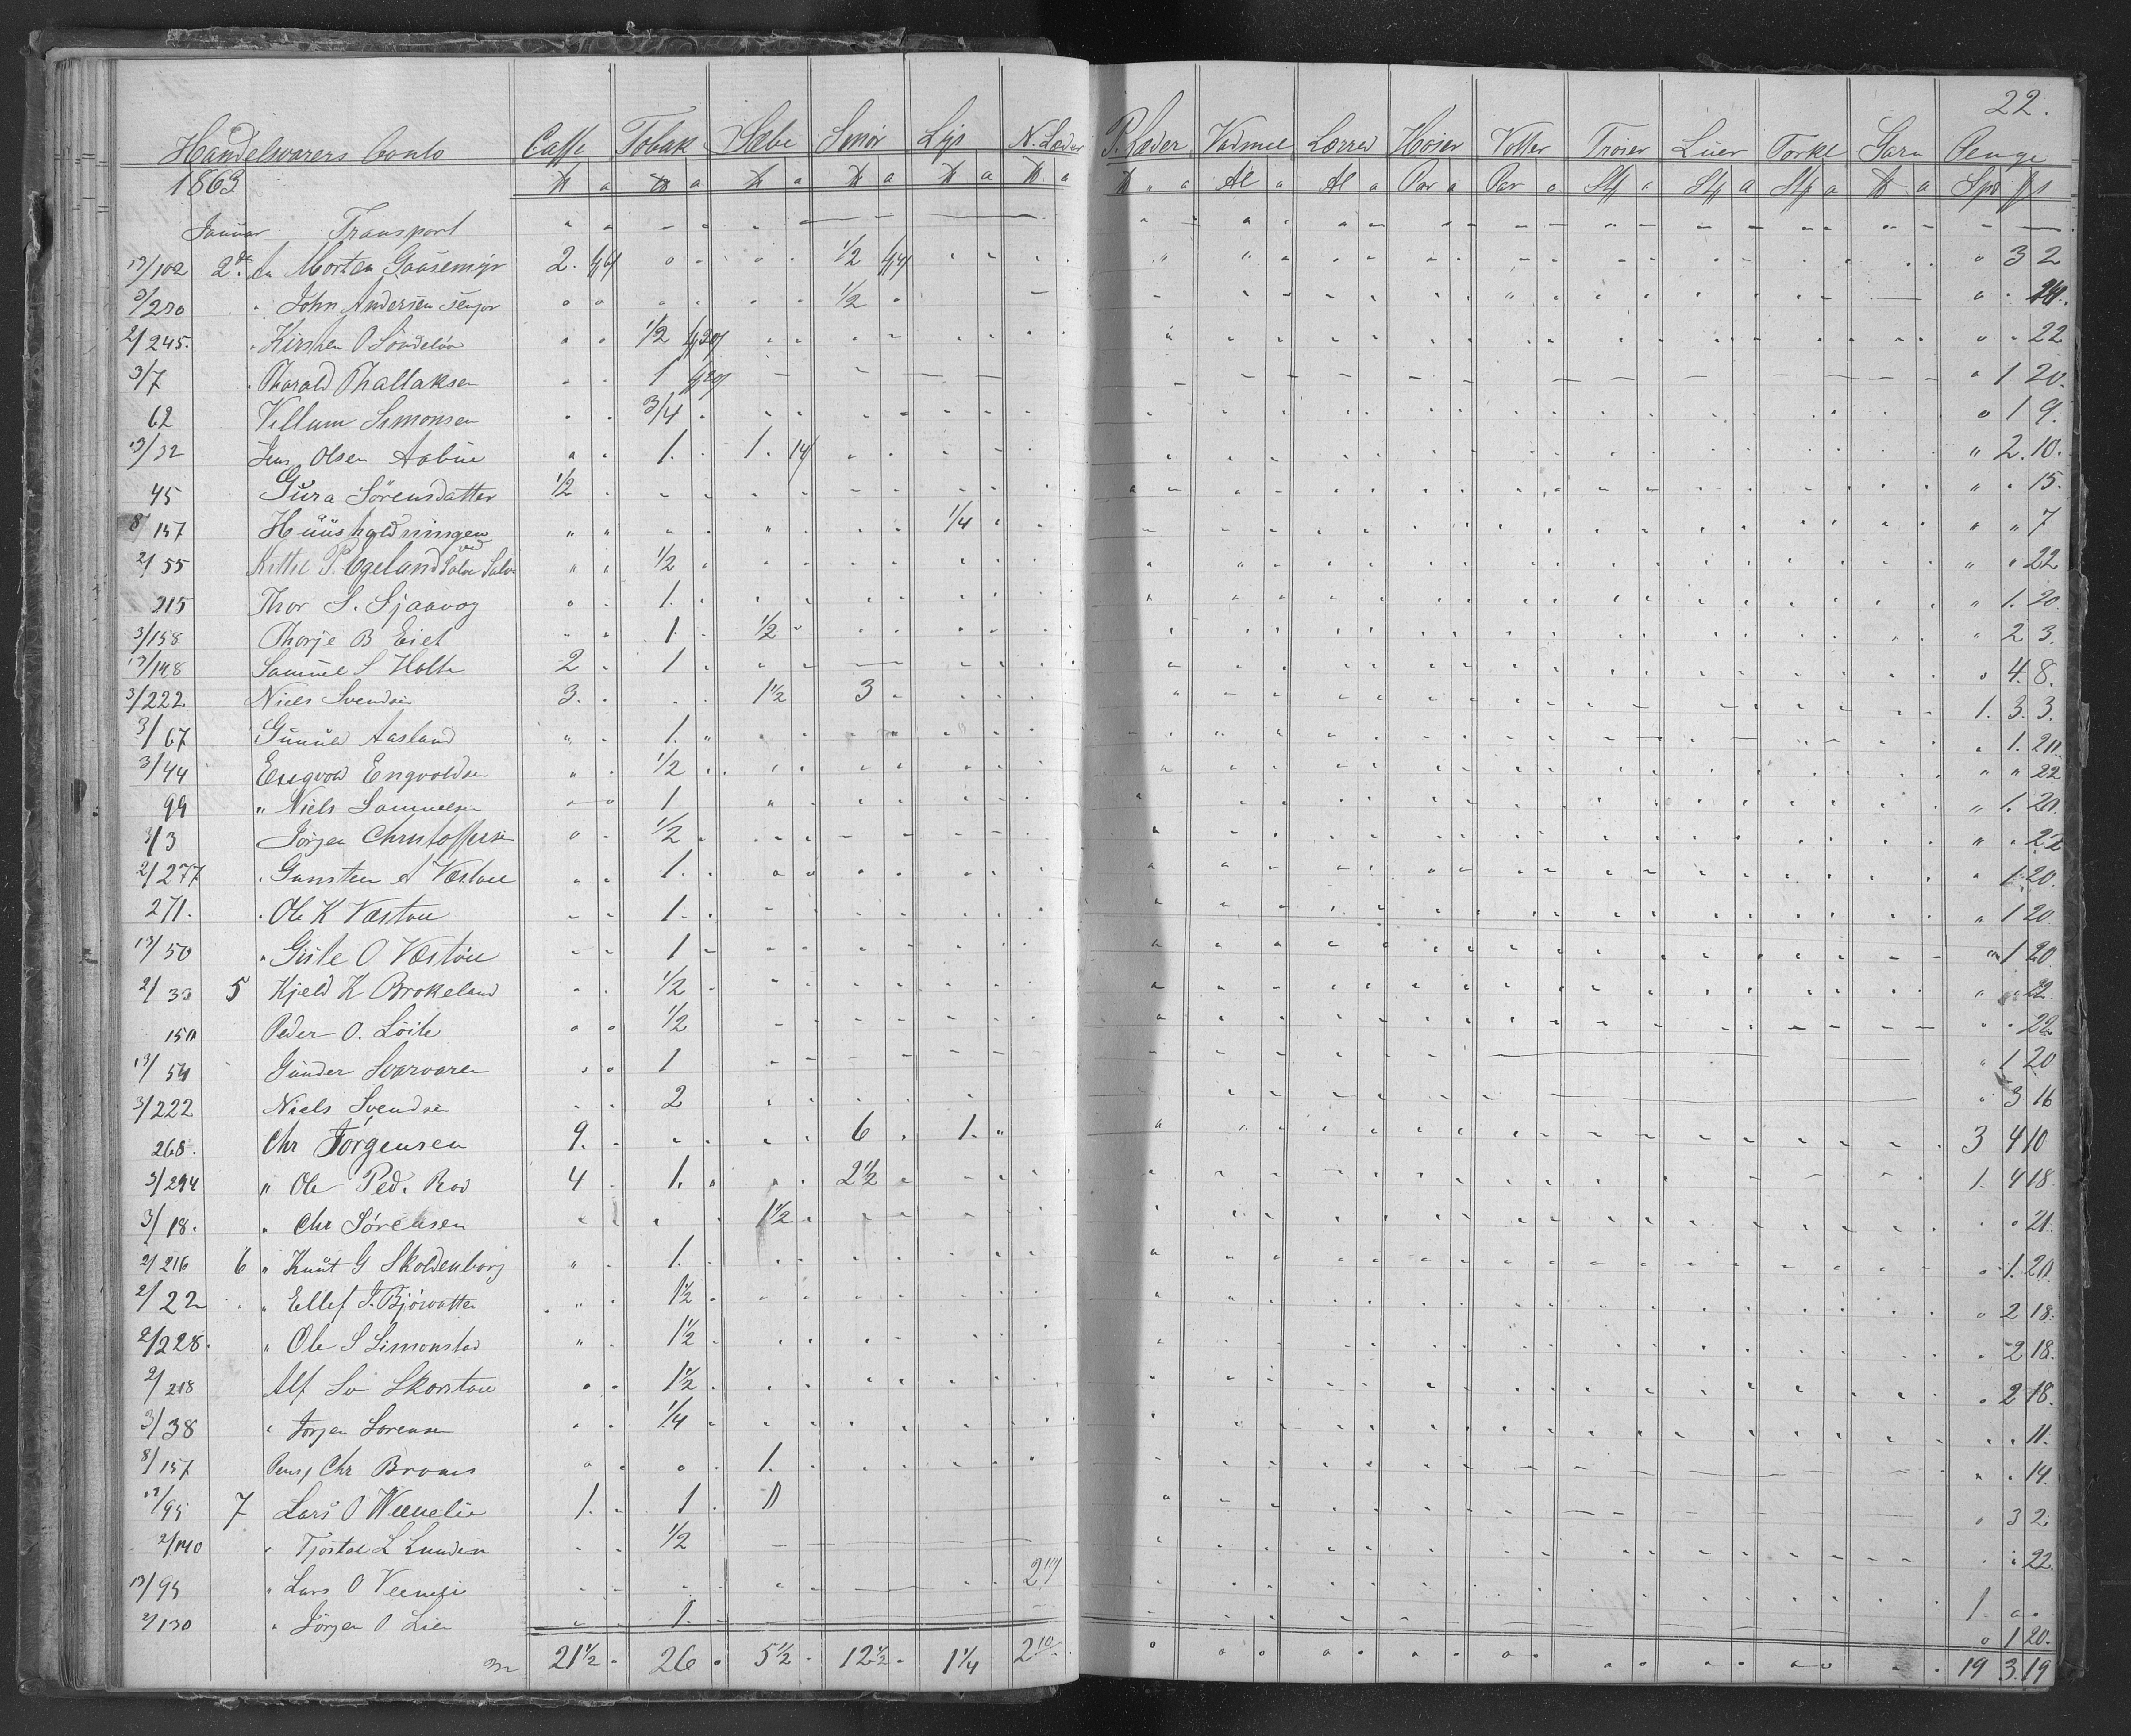 22.
Handelsvarers Conto Caffe Tobak Sæbe Smør Lys N. Læder P. Læder Vadmel Lærred Hoser Votter Trøier Luer Torkl Garn Penge
1863 ℔ a ℔ a ℔ a ℔ a ℔ a ℔ a ℔ " a Al a Al a Par a Par a Stk a Stk a Stk a ℔ a Spd ß
Januar Transport
13/102 2de An Morten Gaasemyr 2. 1/2 " 3 2
3/270 " John Andersen senior 1/2
2/245. " Kirsten O Sondeløa 1/2 " " 22
3/7 " Tharald Thallaksen 1 " 1 20.
62 Vellum Simonsen 3/4 " 1 9.
13/32 Jens Olsen Aabue 1. 1. 14 " 2. 10.
45 Gura Sørensdatter 1/2 " " 15.
8/157 Huusholdningen 1/4 " " 7
2/55 Kittel P. Egeland ved Salve 1/2 " " 22
215 Thor S. Sjaavog 1. " 1. 20
3/158 Thorje B Eiet 1. 1/2 " 2 3.
13/148 Samuel S Holte 2 1 " 4. 8.
3/222 Niels Svendsen 3. 1 1/2 3 1. 3. 3.
3/67 Gunuld Aasland 1. " 1. 20.
3/44 Engvold Engvoldsen 1/2 " " 22
99 " Niels Samuelsen 1 " 1. 20.
3/3 Jørgen Christoffersen 1/2 " " 22
2/277 " Gunsten A Væstøl 1. " 1. 20.
271. " Ole K Væstøl 1. " 1 20
13/50 " Gisle O Væstøl 1 " 1 20
2/33 5 Kjeld K Brokeland 1/2 " " 22.
150 Peder O. Løite 1/2 " " 22.
13/54 Gunder Svarvaren 1 " 1 20
3/222 Niels Svendsen 2 " 3 16
268. Chr Jørgensen 9. 6 1. 3 4 10
3/294 " Ole Ped. Roe 4 1. 2 1/2 1. 4 18
3/18. " Chr Sørensen 1 1/2 " " 21.
2/216 6 " Knut G Skoldenborg 1. " 1. 20
2/22 " Ellef J. Bjørvatten 1 1/2 " 2 18.
2/228. " Ole S Simonstad 1 1/2 " 2 18.
2/218 Alf Sv Skorstøl 1 1/2 " 2 18.
3/38 " Jørgen Sørensen 1/4 " " 11.
8/157 Chr Broms 1. " " 14.
13/95 7 Lars O Veenelie 1. 1 " 3 2
2/140 " Tjøstol L Lunden 1/2 " " 22.
13/95 " Lars O Veenelie 1 " "
2/130 " Jørgen O Lien 1. " 1 20.
21 1/2 26 5 1/2 12 1/2 1 1/4 2 10 19 3. 19